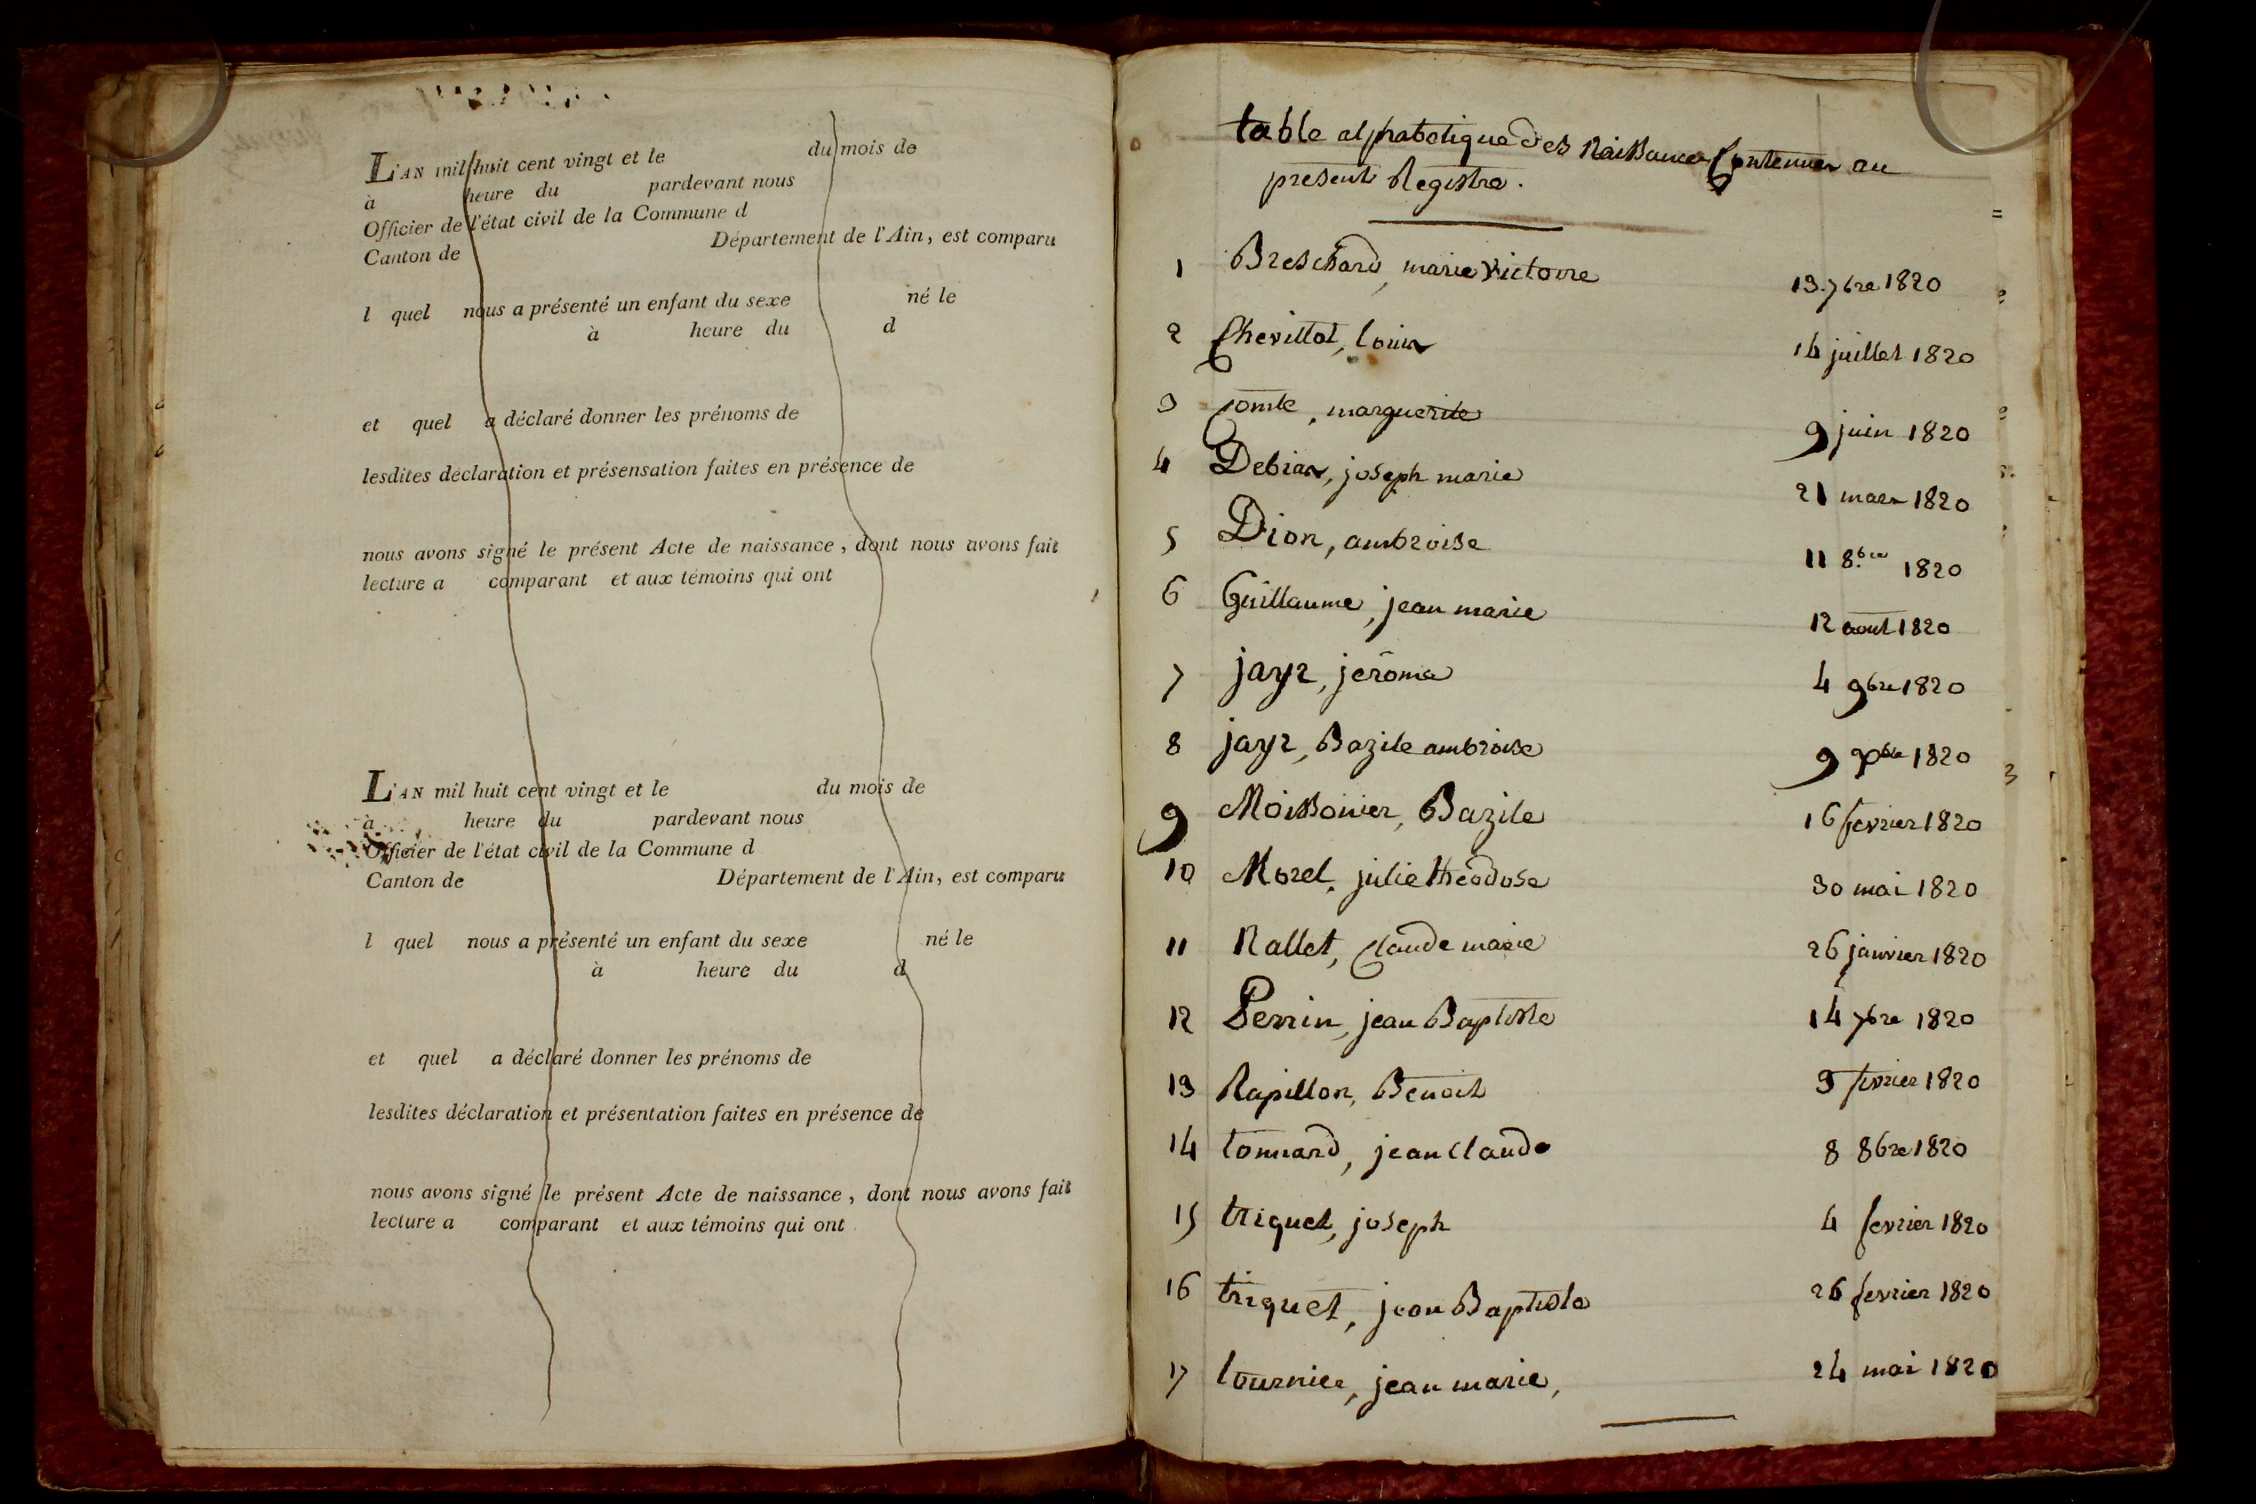 L'AN mil huit cent vingt et le du mois de
à heure du pardevant nous
Officier de l'état civil de la Commune d
Canton de Département de l'Ain, est comparu
l quel nous a présenté un enfant du sexe né le
à heure du d
et quel a déclaré donner les prénoms de
lesdites déclaration et présensation faites en présence de
nous avons signé le présent Acte de naissance, dont nous avons fait
lecture a comparant et aux témoins qui ont
L'AN mil huit cent vingt et le du mois de
à heure du pardevant nous
Officier de l'état civil de la Commune d
Canton de Département de l'Ain, est comparu
l quel nous a présenté un enfant du sexe né le
à heure du d
et quel a déclaré donner les prénoms de
lesdites déclaration et présentation faites en présence de
nous avons signé le présent Acte de naissance, dont nous avons fait
lecture a comparant et aux témoins qui ont
table alphabetique des Naissances Contenues au
present Registre.
1 Breschard, marie victoire 13 7bre 1820
2 Chevillot, louis 14 juillet 1820
3 Comte, marguerite 9 juin 1820
4 Debias, joseph marie 21 mars 1820
5 Dion, ambroise 11 8.bre 1820
6 Guillaume, jean marie 12 aout 1820
7 jayr, jerôme 4 9bre 1820
8 jayr, Bazile ambroise 9 1820
9 Moissonier, Bazile 16 fevrier 1820
10 Morel, julie theodose 30 mai 1820
11 Nallet, Claude marie 26 janvier 1820
12 Perrin, jean Baptiste 14 7bre 1820
13 Rapillon, Benoit 3 fevrier 1820
14 tonnard, jean Claude 8 8bre 1820
15 triquet, joseph 4 fevrier 1820
16 triquet, jean Baptiste 26 fevrier 1820
17 tournier, jean marie, 24 mai 1820